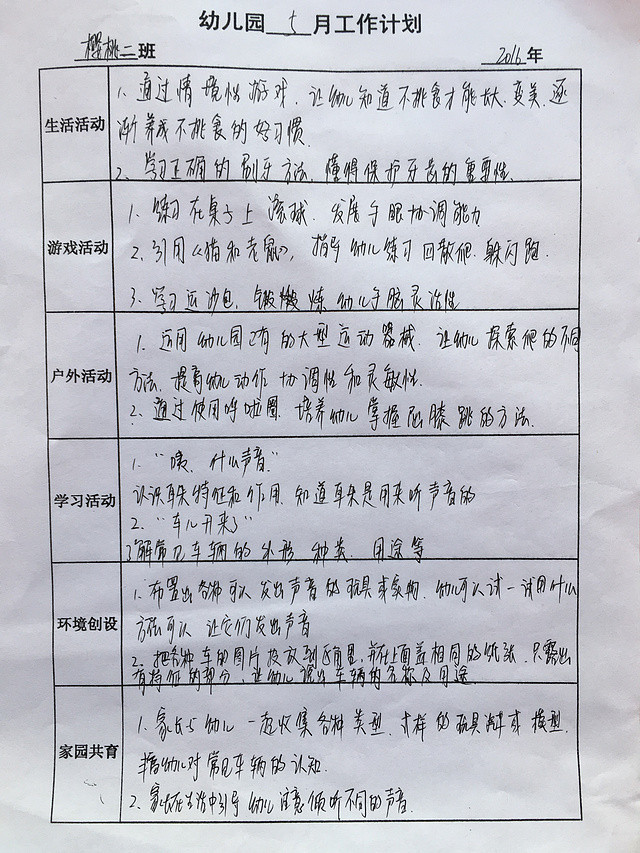 幼儿园 5 月工作计划
樱桃二班 2016年
生活活动
1. 通过情境性游戏，让幼儿知道不挑食才能长大、变美，逐
渐养成不挑食的好习惯.
2、学习正确的刷牙方法，懂得保护牙齿的重要性.
游戏活动
1. 练习在桌子上滚球. 发展手眼协调能力
2. 引用《猫和老鼠》，指导幼儿练习四散爬、躲闪跑.
3. 学习运沙包, 锻炼幼儿手脑灵活性
户外活动
1. 运用幼儿园已有的大型运动器械. 让幼儿探索爬的不同
方法. 提高幼儿动作协调性和灵敏性.
2. 通过使用呼啦圈. 培养幼儿掌握屈膝跳的方法.
学习活动
1. “咦, 什么声音”
认识耳朵特征和作用. 知道耳朵是用来听声音的
2. “车儿开来了”
了解常见车辆的外形、种类、用途等
环境创设
1. 布置出各种可以发出声音的玩具或实物. 幼儿可以试一试用什么
方法可以让它们发出声音
2. 把各种车的图片投放到区角里, 并在上面盖相同的纸张. 只露出
有特征的部分, 让幼儿说出车辆的名称及用途.
家园共育
1. 家长与幼儿一起收集各种类型、式样的玩具汽车或模型.
丰富幼儿对常见车辆的认知.
2. 家长在生活中引导幼儿注意倾听不同的声音.